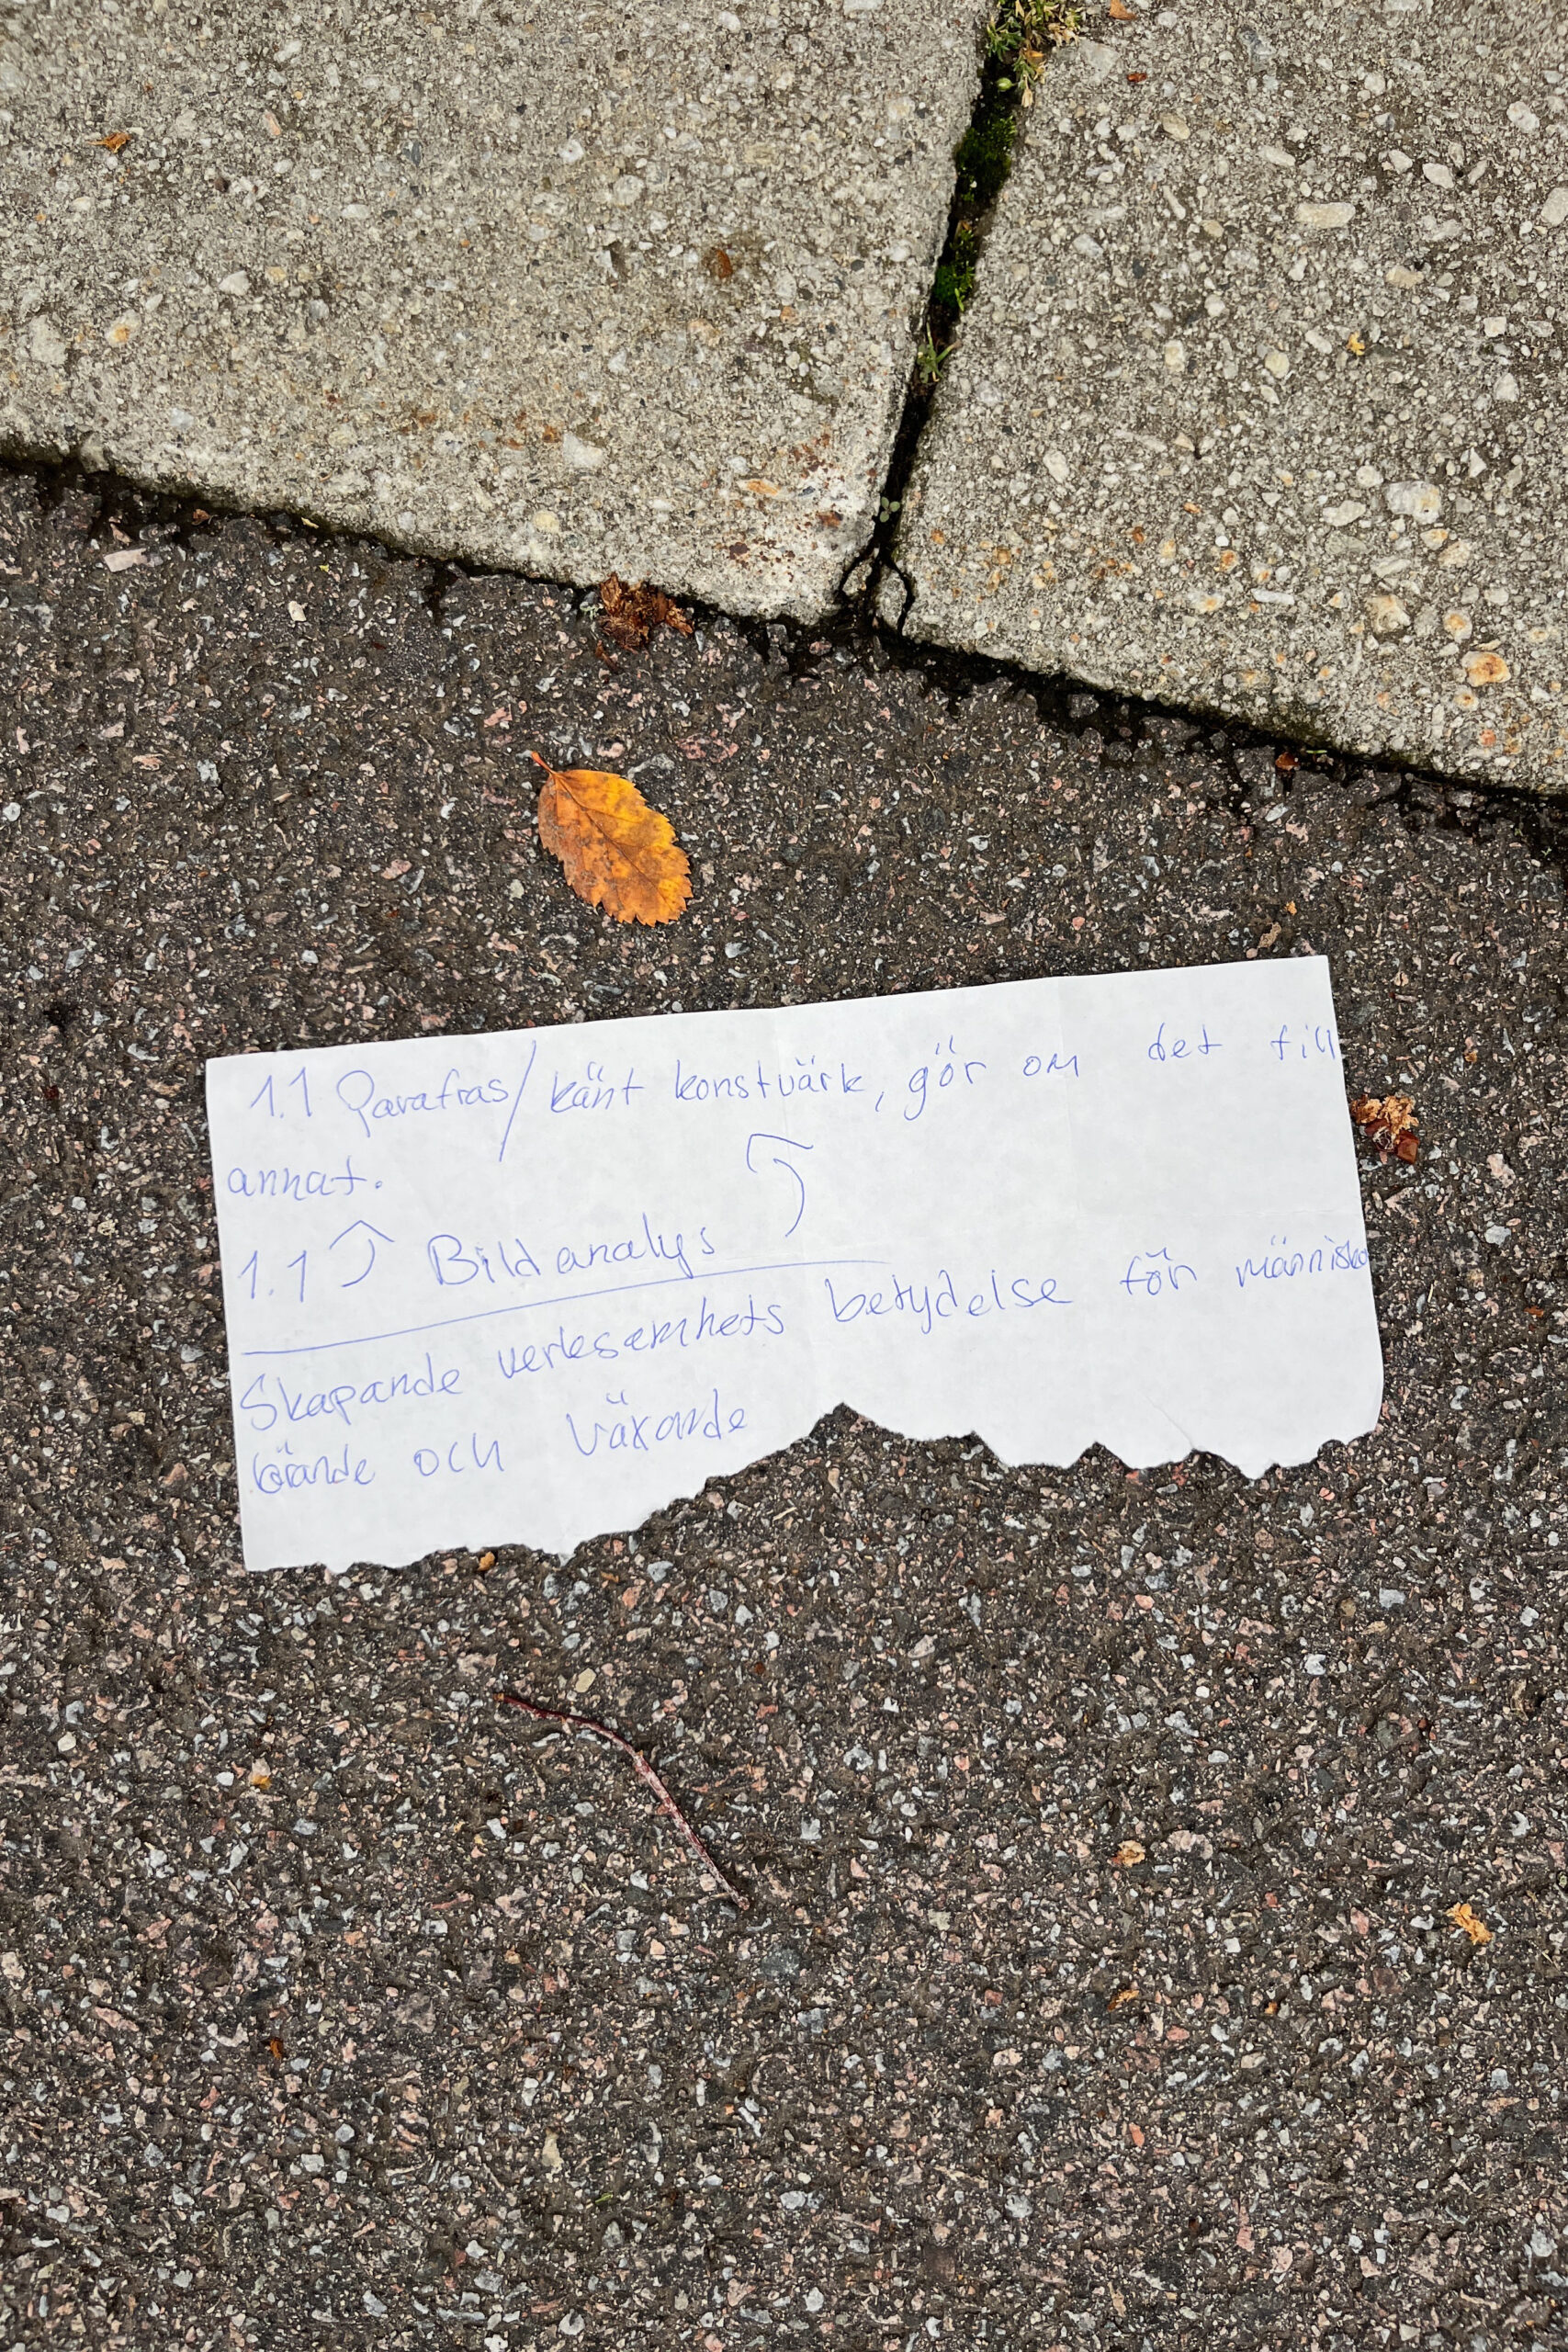 1.1 Parafras/känt konstvärk, gör om det till
annat.
1.1 Bildanalys
Skapande verksamhets betydelse för människa
lärande och växande